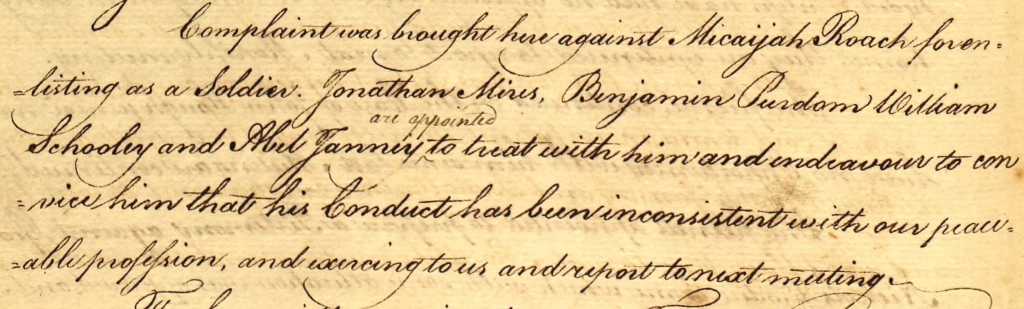 Complaint was brought here against Micaijah Roach for en=
=listing as a Soldier. Jonathan Mires, Benjamin Purdom William
are appointed
Schooley and Abel Janney to treat with him and endeavour to con
=vice him that his Conduct has been inconsistent with our peace=
=able profession, and exercing to us and report to next meeting.